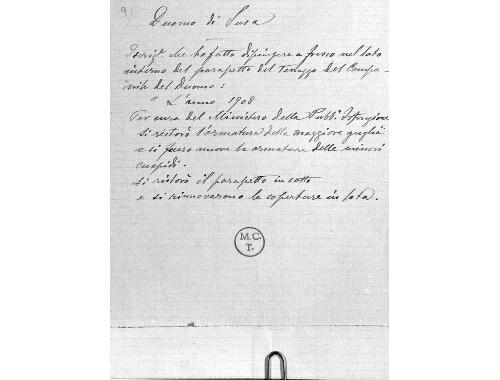 9)
Duomo di Susa
Iscriz. che ho fatto dipingere a fresco nel lato
interno del parapetto del terrazzo del Campa-
nile del Duomo:
" L'anno 1908
Per cura del Ministero della Pubb. Istruzione
si restorò l'armatura della maggiore guglia
e si fecero nuove le armature delle minori
cuspidi.
Si ristorò il parapetto in cotto
e si rinnovarono le coperture in lata.
M.C.
T.